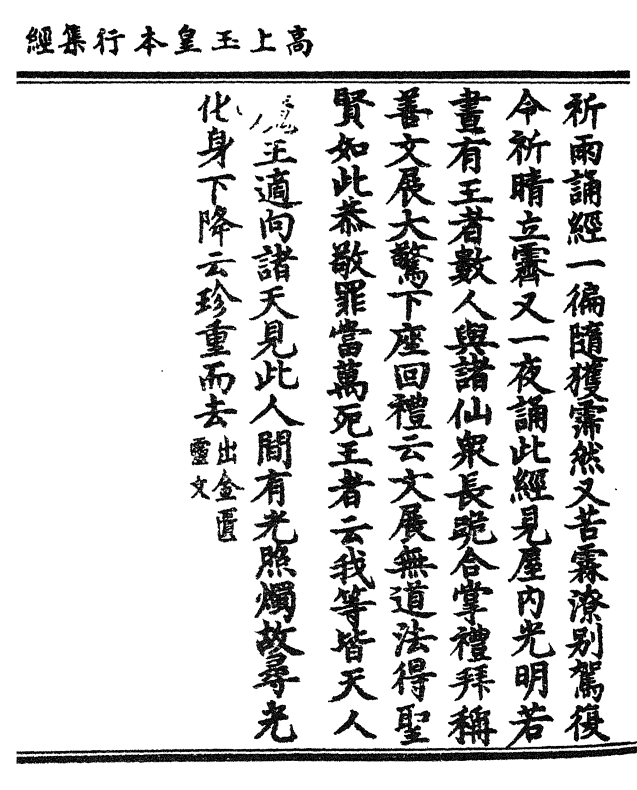 高上玉皇本行集經
祈雨誦經一徧隨獲霈然又苦霖潦别駕復
令祈晴立霽又一夜誦此經見屋内光明若
晝有王者數人與諸仙衆長跪合掌禮拜稱
善文展大驚下座回禮云文展無道法得聖
賢如此恭敬罪當萬死王者云我等皆天人
王適向諸天見此人間有光照燭故尋光
化身下降云珍重而去出金匱靈文